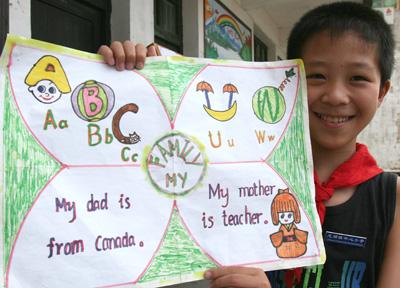 A
B
C
Aa
Bb
Cc
U
W
Uu
Ww
FAMILY
MY
My dad is
from Canada.
My mother
is teacher.